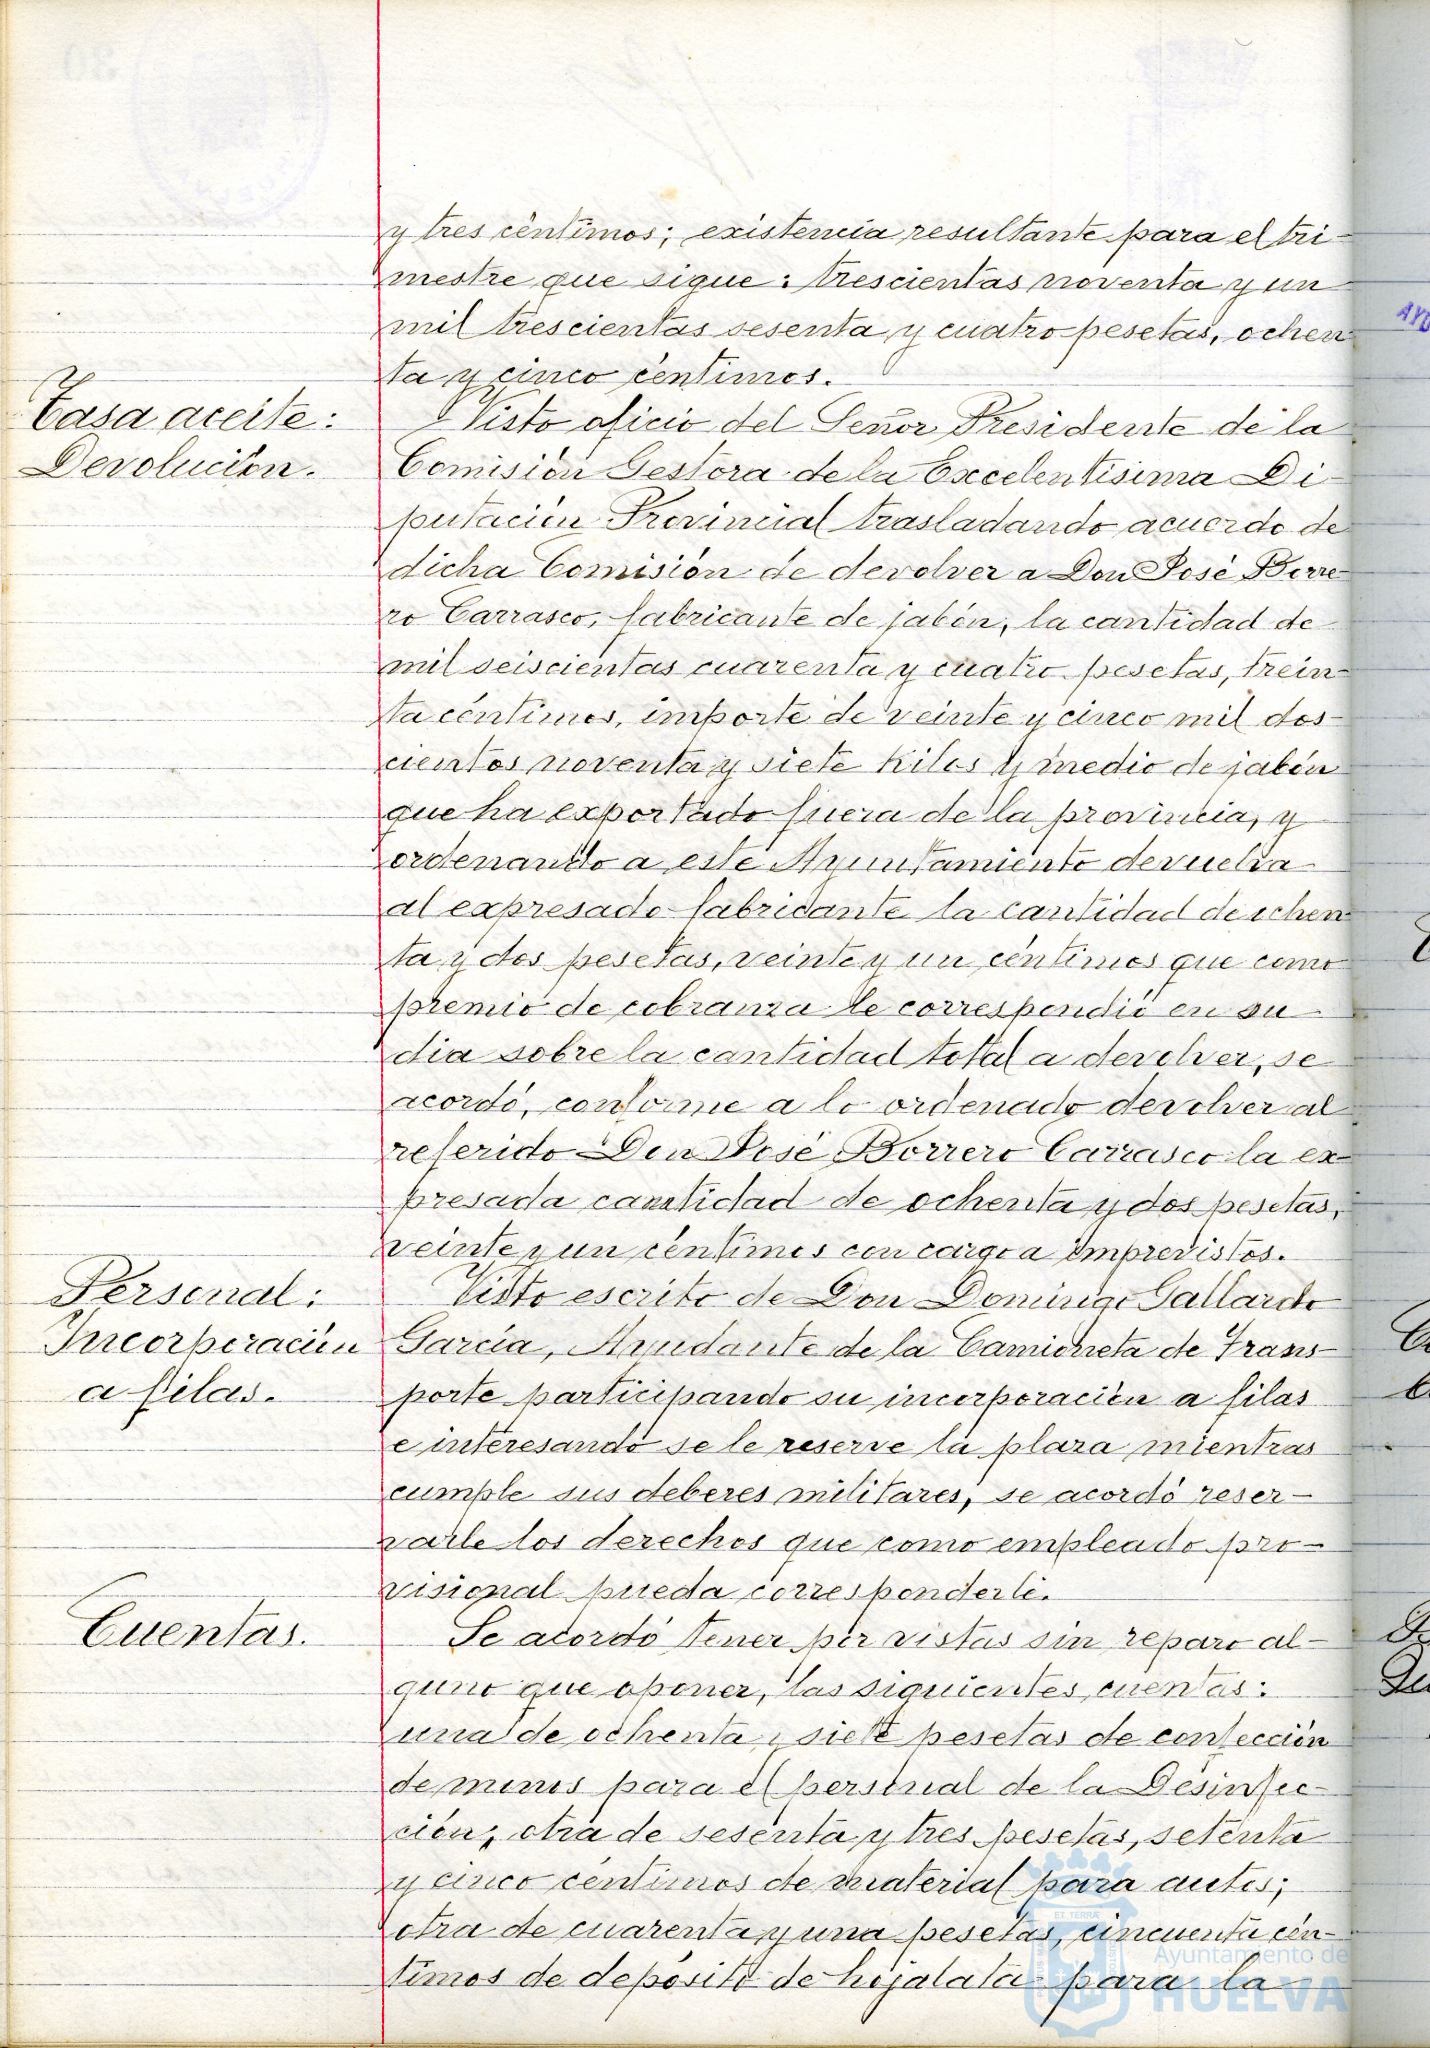 y tres céntimos; existencia resultante para el tri-
mestre que sigue: trescientas noventa y un
mil trescientas sesenta y cuatro pesetas, ochen
ta y cinco céntimos.
Tasa aceite:
Devolución.
Visto oficio del Señor Presidente de la
Comisión Gestora de la Excelentísima Di-
putación Provincial trasladando acuerdo de
dicha Comisión de devolver a Don José Borre-
ro Carrasco, fabricante de jabón, la cantidad de
mil seiscientas cuarenta y cuatro pesetas, trein-
ta céntimos, importe de veinte y cinco mil dos-
cientos noventa y siete kilos y medio de jabón
que ha exportado fuera de la provincia, y
ordenando a este Ayuntamiento devuelva
al expresado fabricante la cantidad de ochen
ta y dos pesetas, veinte y un céntimos que como
premio de cobranza le correspondió en su
dia sobre la cantidad total a devolver, se
acordó, conforme a lo ordenado devolver al
referido Don José Borrero Carrasco la ex-
presada cantidad de ochenta y dos pesetas,
veinte y un céntimos con cargo a imprevistos.
Personal:
Incorporación
a filas.
Visto escrito de Don Domingo Gallardo
García, Ayudante de la Camioneta de Trans-
porte participando su incorporación a filas
e interesando se le reserve la plaza mientras
cumple sus deberes militares, se acordó reser-
varle los derechos que como empleado pro-
visional pueda corresponderle.
Cuentas.
Se acordó tener por vistas sin reparo al-
guno que oponer, las siguientes cuentas:
una de ochenta y siete pesetas de confección
de monos para el personal de la Desinfec-
ción; otra de sesenta y tres pesetas, setenta
y cinco céntimos de material para autos;
otra de cuarenta y una pesetas, cincuenta cén-
timos de depósito de hojalata para la
Ayuntamiento de
HUELVA